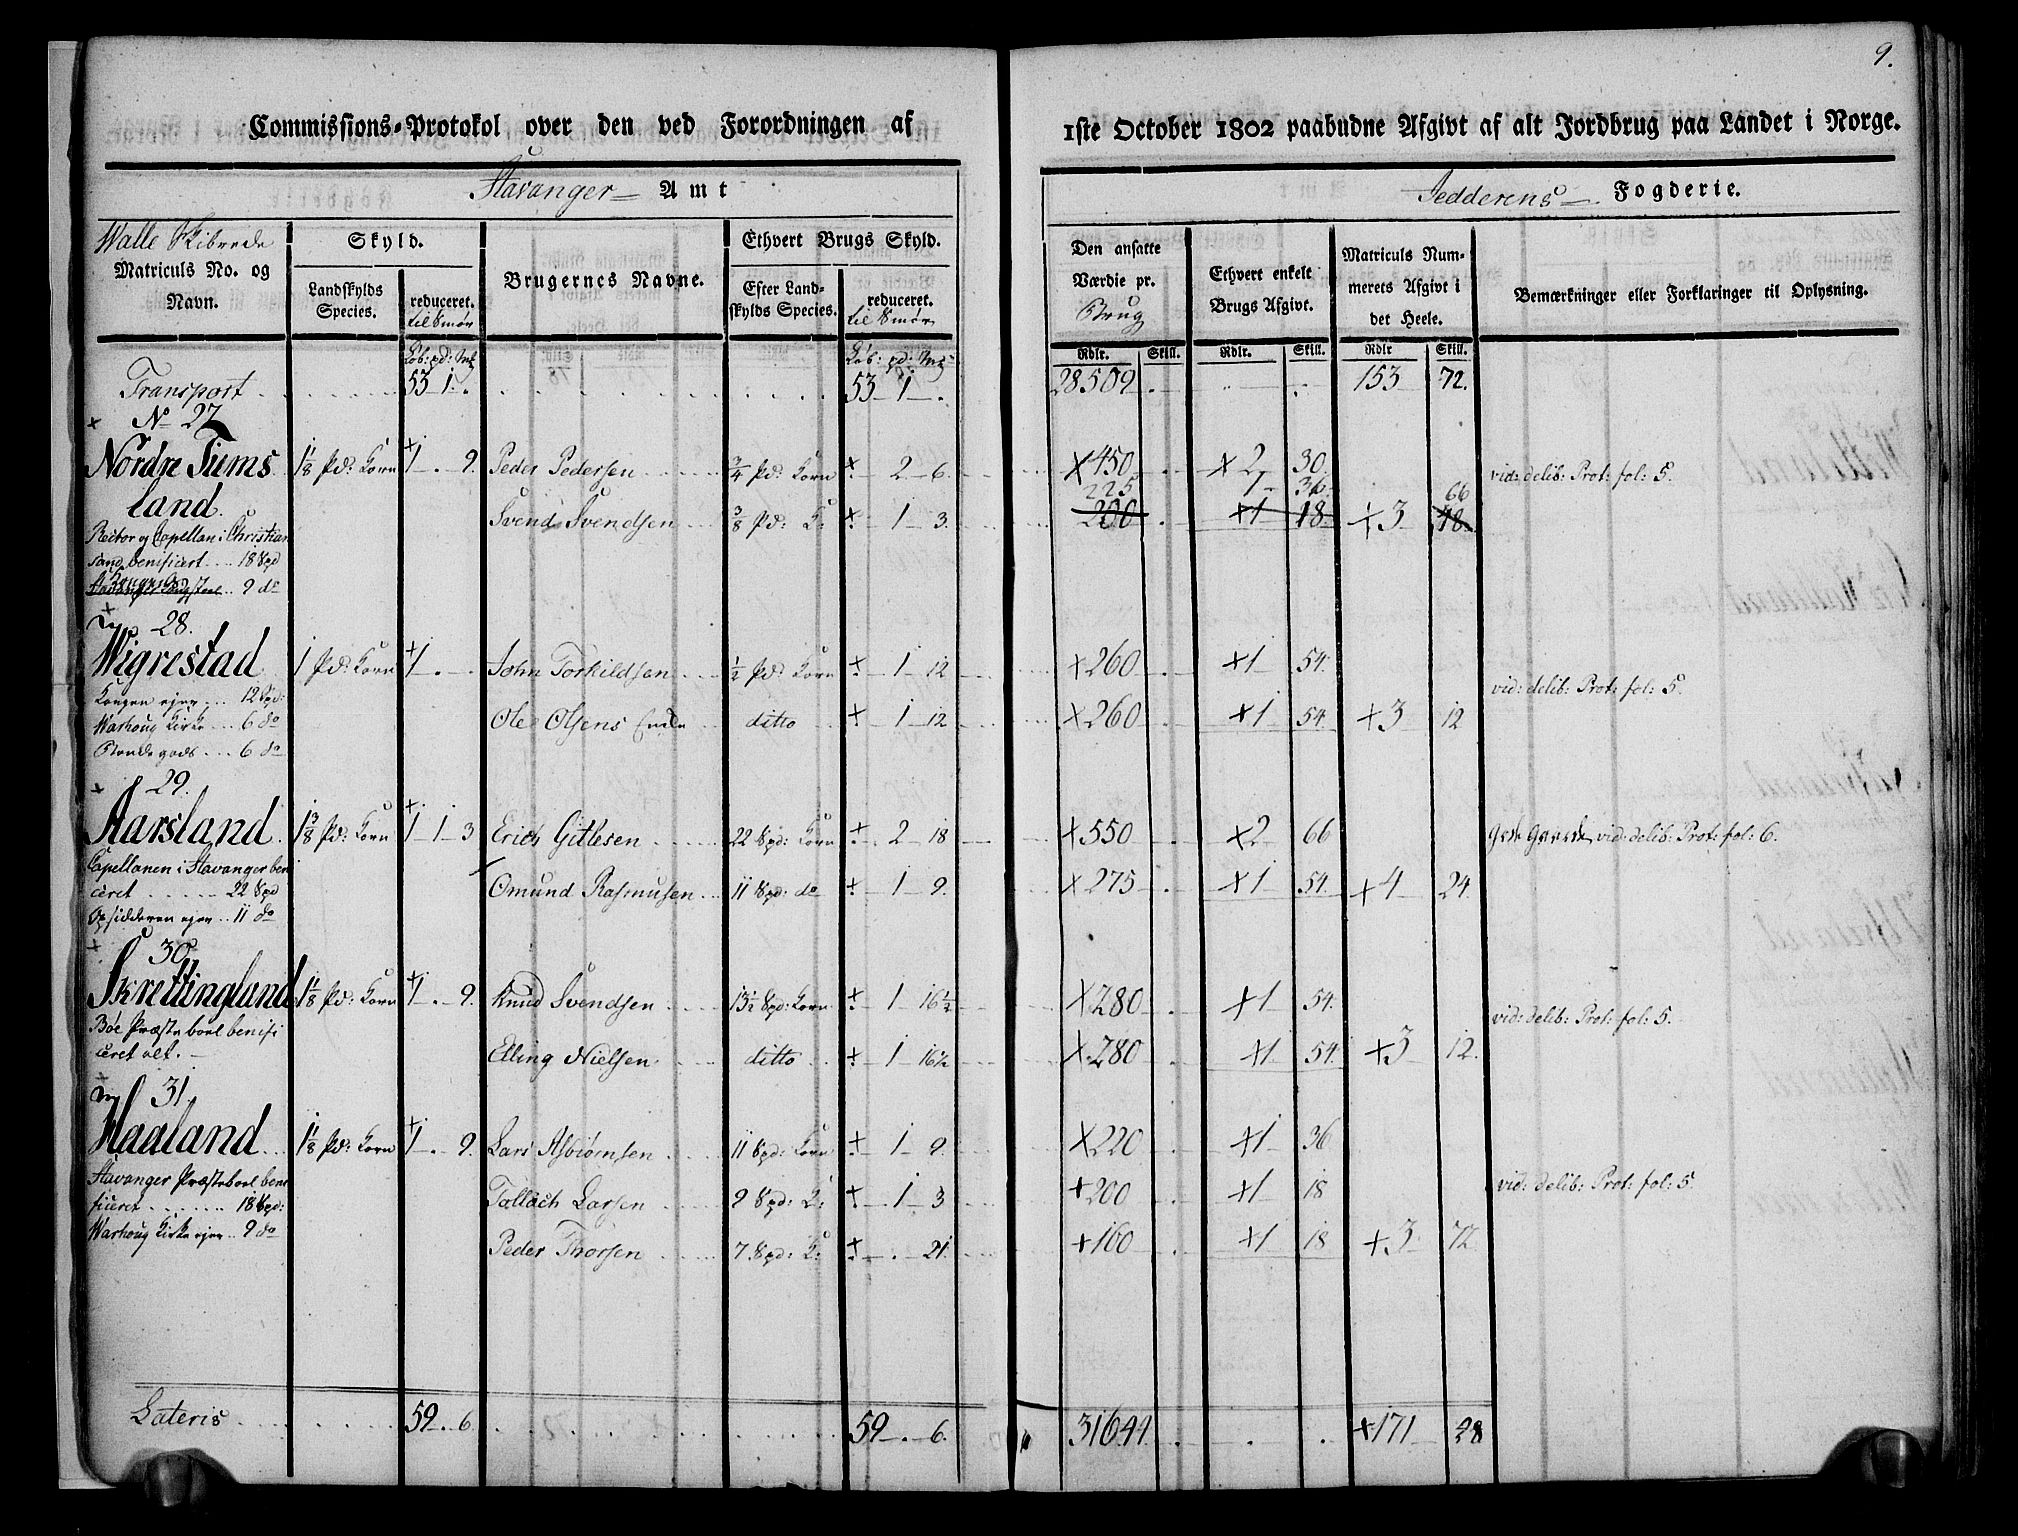 9.
Commissions-Protokol over den ved Forordningen af 1ste October 1802 paabudne Afgivt af alt Jordbrug paa Landet i Norge.
Stavanger Amt Jedderens Fogderie.
Walle Skibrede
Matriculs No. og Navn.
Skyld.
Landskylds Species.
reduceret. til Smør
Brugernes Navne.
Ethvert Brugs Skyld.
Efter Landskylds Species.
reduceret. til Smør
Den ansatte Værdie pr. Brug
Ethvert enkelt Brugs Afgivt.
Matriculs Nummerets Afgivt i det Heele.
Bemærkninger eller Forklaringer til Oplysning.
Løb: pd: Mk Løb: pd: Mk Rdlr. Skill. Rdlr. Skill. Rdlr Skill.
Transport 53 1 . 53 1 . 28509 . . . 153 72.
No 27
Nordre Tiums 1 1/8 Pd: Korn 1 . 9. Peder Pedersen 3/4 Pd: Korn - 2 6. 450 2 30. vid: delib: Prot: fol: 5.
225 1 36 66
land. Svend Svendsen 3/8 Pd: K: - 1 3. 200 1 18. 3 48.
Rector og Capellan i Christian
sand benificert 18 Spd
9 do
28.
Wigrestad 1 Pd: Korn 1 . . John Torkildsen 1/2 Pd: Korn - 1 12 260 1 54.
Kongen ejer 12 Spd: vid: delib: Prot: fol: 5.
Warhoug Kirke 6 do Ole Olsens Enke ditto - 1 12 260 1 54. 3 12
Bondegods 6 do
29.
Aarsland 1 3/8 Pd: Korn 1 1 3 Erich Gitlesen 22 Spd: Korn - 2 18 550 2 66 vid: delib: Prot: fol: 6.
Capellanen i Stavanger beni
ceret 22 Spd Omund Rasmusen 11 Spd: do - 1 9. 275 1 54. 4 24.
Opsidderen ejer 11 do
30.
Skrettingland 1 1/8 Pd: Korn 1 . 9. Knud Svendsen 13 1/2 Spd: Korn - 1 16 1/2 280 1 54.
Bøe Præsteboel benifi vid: delib: Prot: fol: 5.
ceret alt. Elling Nielsen ditto - 1 16 1/2 280 1 54. 3 12.
31.
Haaland 1 1/8 Pd: Korn 1 . 9. Lars Asbiørnsen 11 Spd: Korn - 1 9. 220 1 36
Stavanger Præsteboel beni
ficeret 18 Spd: Tollach Larsen 9 Spd: K: - 1 3 200 1 18 vid: delib: Prot: fol: 5.
Warhoug Kirke ejer 9 do
Peder Thorsen 7 Spd: K: - . 21. 160 1 18 3 72.
Lateris 59 . 6 59 . 6. 31644 . . . 171 28